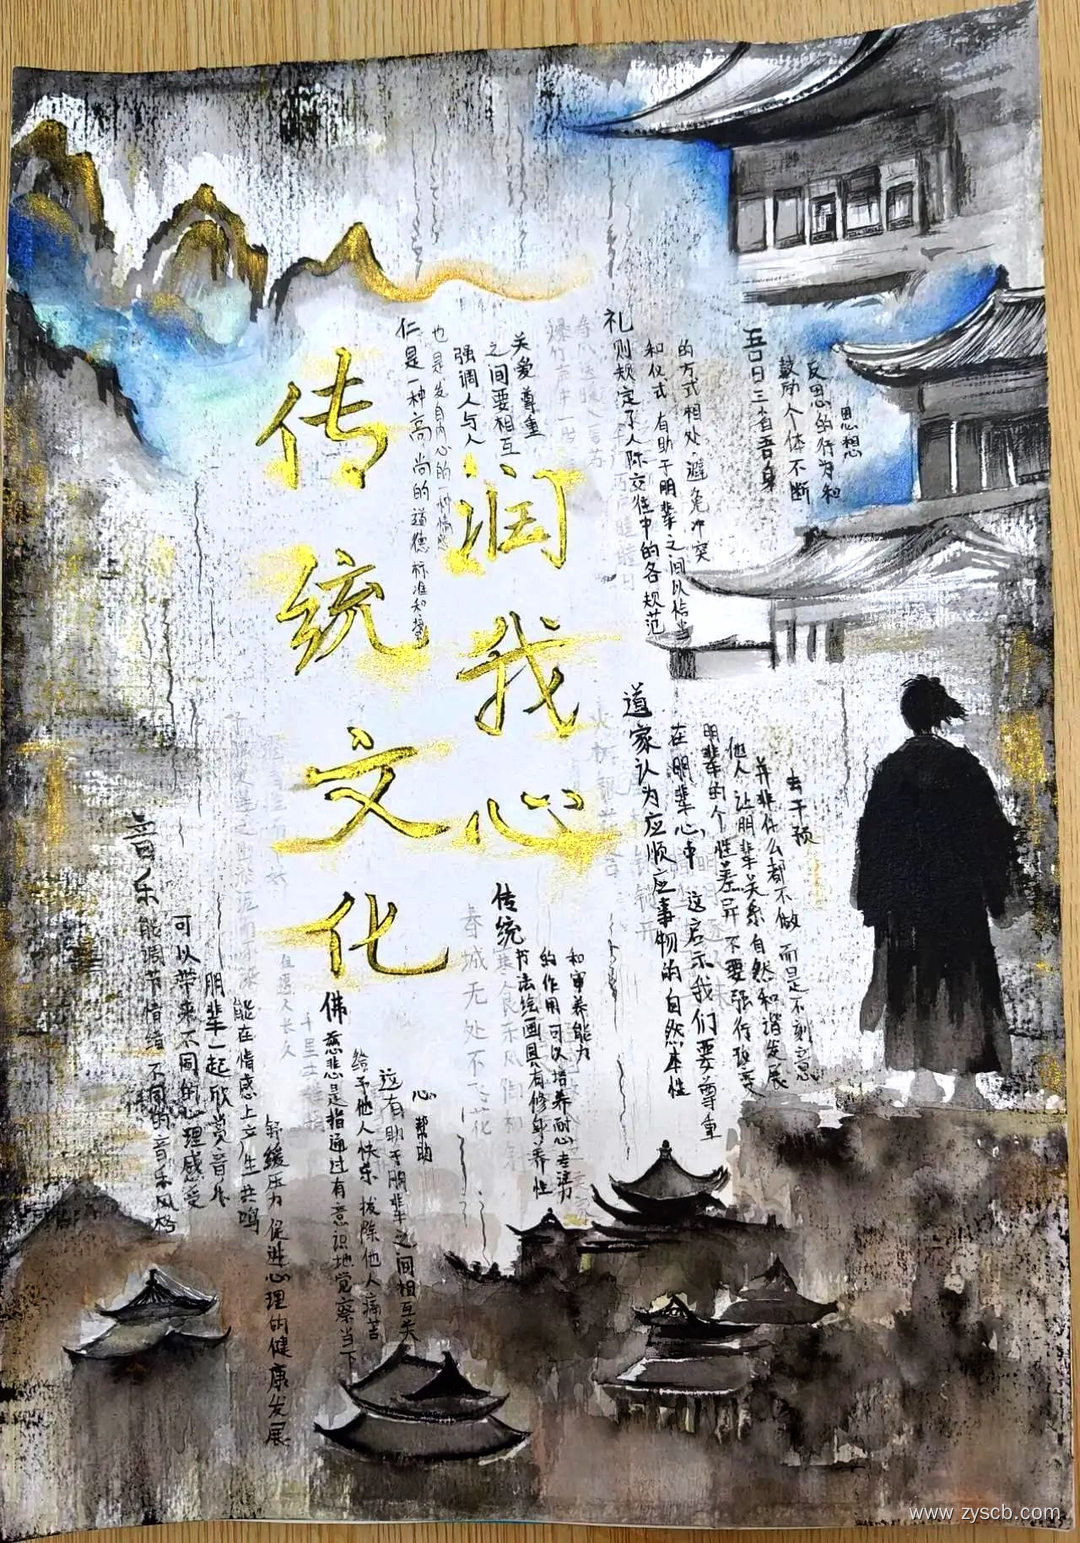 传统文化
润我心
仁是一种高尚的道德标准和
也是发自内心的一种情感
强调人与人
之间要相互
关爱尊重
礼则规定了人际交往中的各规范
和仪式 有助于朋辈之间以恰当
的方式相处 避免冲突
吾日三省吾身
鼓励个体不断
反思的行为和
思想
道家认为应顺应事物的自然本性
在朋辈心中 这启示我们要尊重
朋辈的个性差异 不要强行改变
他人 让朋辈关系自然和谐发展
并非什么都不做 而是不刻意
去干预
传统
书法绘画具有修身养性
的作用可以培养耐心专注力
和审美能力
春城无处不飞花
但愿人长久
佛慈悲是指通过有意识地觉察当下
给予他人快乐 拔除他人痛苦
这有助于朋辈之间相互关
心 帮助
音乐能调节情绪 不同的音乐风格
可以带来不同的心理感受
朋辈一起欣赏音乐
能在情感上产生共鸣
舒缓压力 促进心理的健康发展
www.zyscb.com